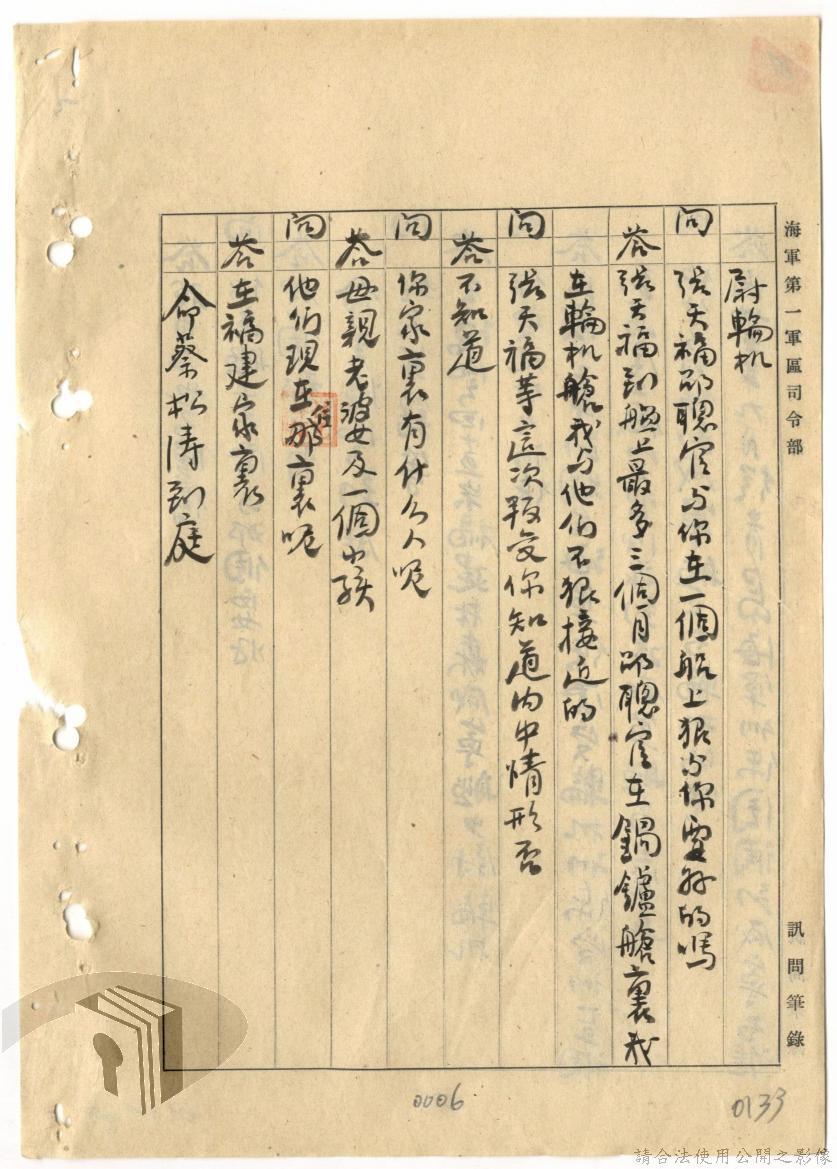 海軍第一軍區司令部 訊問筆錄
尉輪机
問 張天福邵聰官与你在一個船上很与你要好的嗎
答 張天福到艦上最多三個月邵聰官在鍋鑪艙裏我
在輪机艙我与他们不狠接近的
問 張天福等這次叛变你知道内中情形否
答 不知道
問 你家裏有什么人呢
答 母親老婆及一個小孩
問 他们現在住那裏呢
答 在福建家裏
命蔡松涛到庭
0006
0133
請合法使用公開之影像